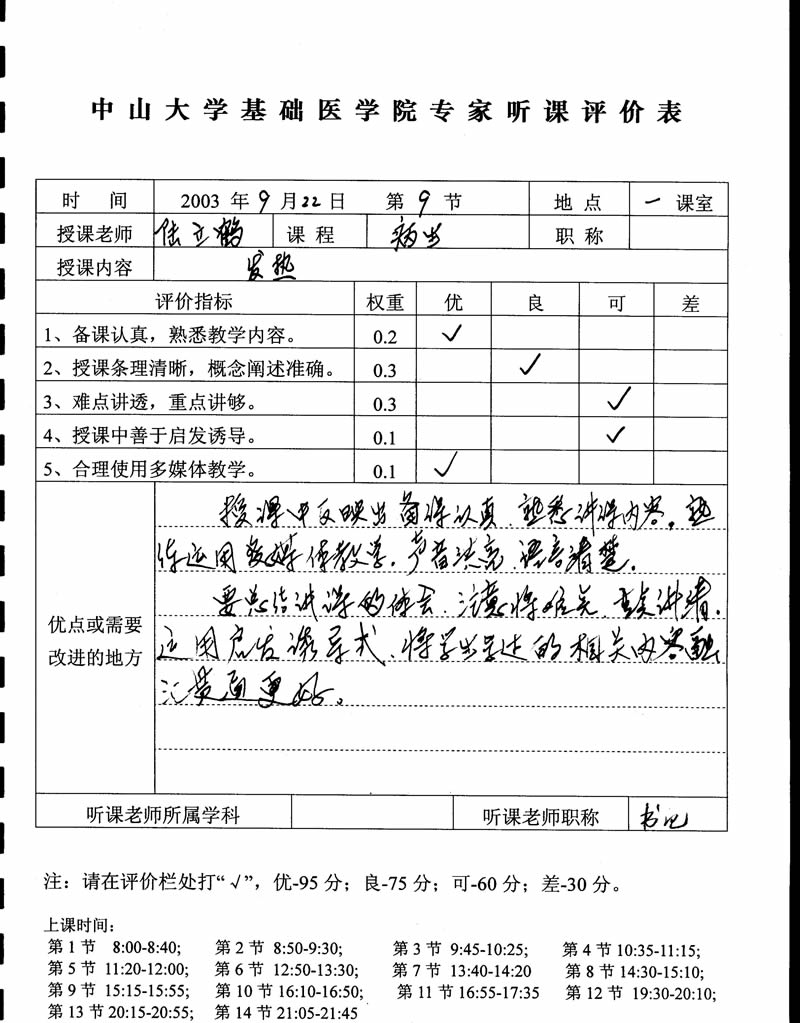 中山大学基础医学院专家听课评价表
时 间 2003 年 9 月 22 日 第 9 节 地 点 一 课室
授课老师 陆立鹤 课 程 病生 职 称
授课内容 发热
评价指标 权重 优 良 可 差
1、备课认真，熟悉教学内容。 0.2 ✓
2、授课条理清晰，概念阐述准确。 0.3 ✓
3、难点讲透，重点讲够。 0.3 ✓
4、授课中善于启发诱导。 0.1 ✓
5、合理使用多媒体教学。 0.1 ✓
优点或需要
改进的地方
授课中反映出备课认真、熟悉讲课内容。熟
练运用多媒体教学，声音洪亮，语言清楚。
要总结讲课的体会，注意将难点、重点讲清.
运用启发诱导式、将学生学过的相关内容融
汇贯通更好。
听课老师所属学科 听课老师职称 书记
注：请在评价栏处打“√”，优-95 分；良-75 分；可-60 分；差-30 分。
上课时间：
第 1 节 8:00-8:40; 第 2 节 8:50-9:30; 第 3 节 9:45-10:25; 第 4 节 10:35-11:15;
第 5 节 11:20-12:00; 第 6 节 12:50-13:30; 第 7 节 13:40-14:20 第 8 节 14:30-15:10;
第 9 节 15:15-15:55; 第 10 节 16:10-16:50; 第 11 节 16:55-17:35 第 12 节 19:30-20:10;
第 13 节 20:15-20:55; 第 14 节 21:05-21:45